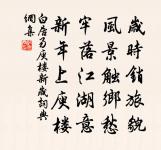 歲時銷旅貌
風景觸鄉愁
牢落江湖意
新年上庾樓
白居易庾樓新歲詞典
網集